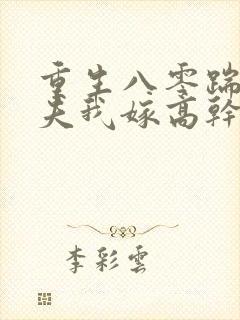 重生八零踹
夫我嫁高幹
李彩雲